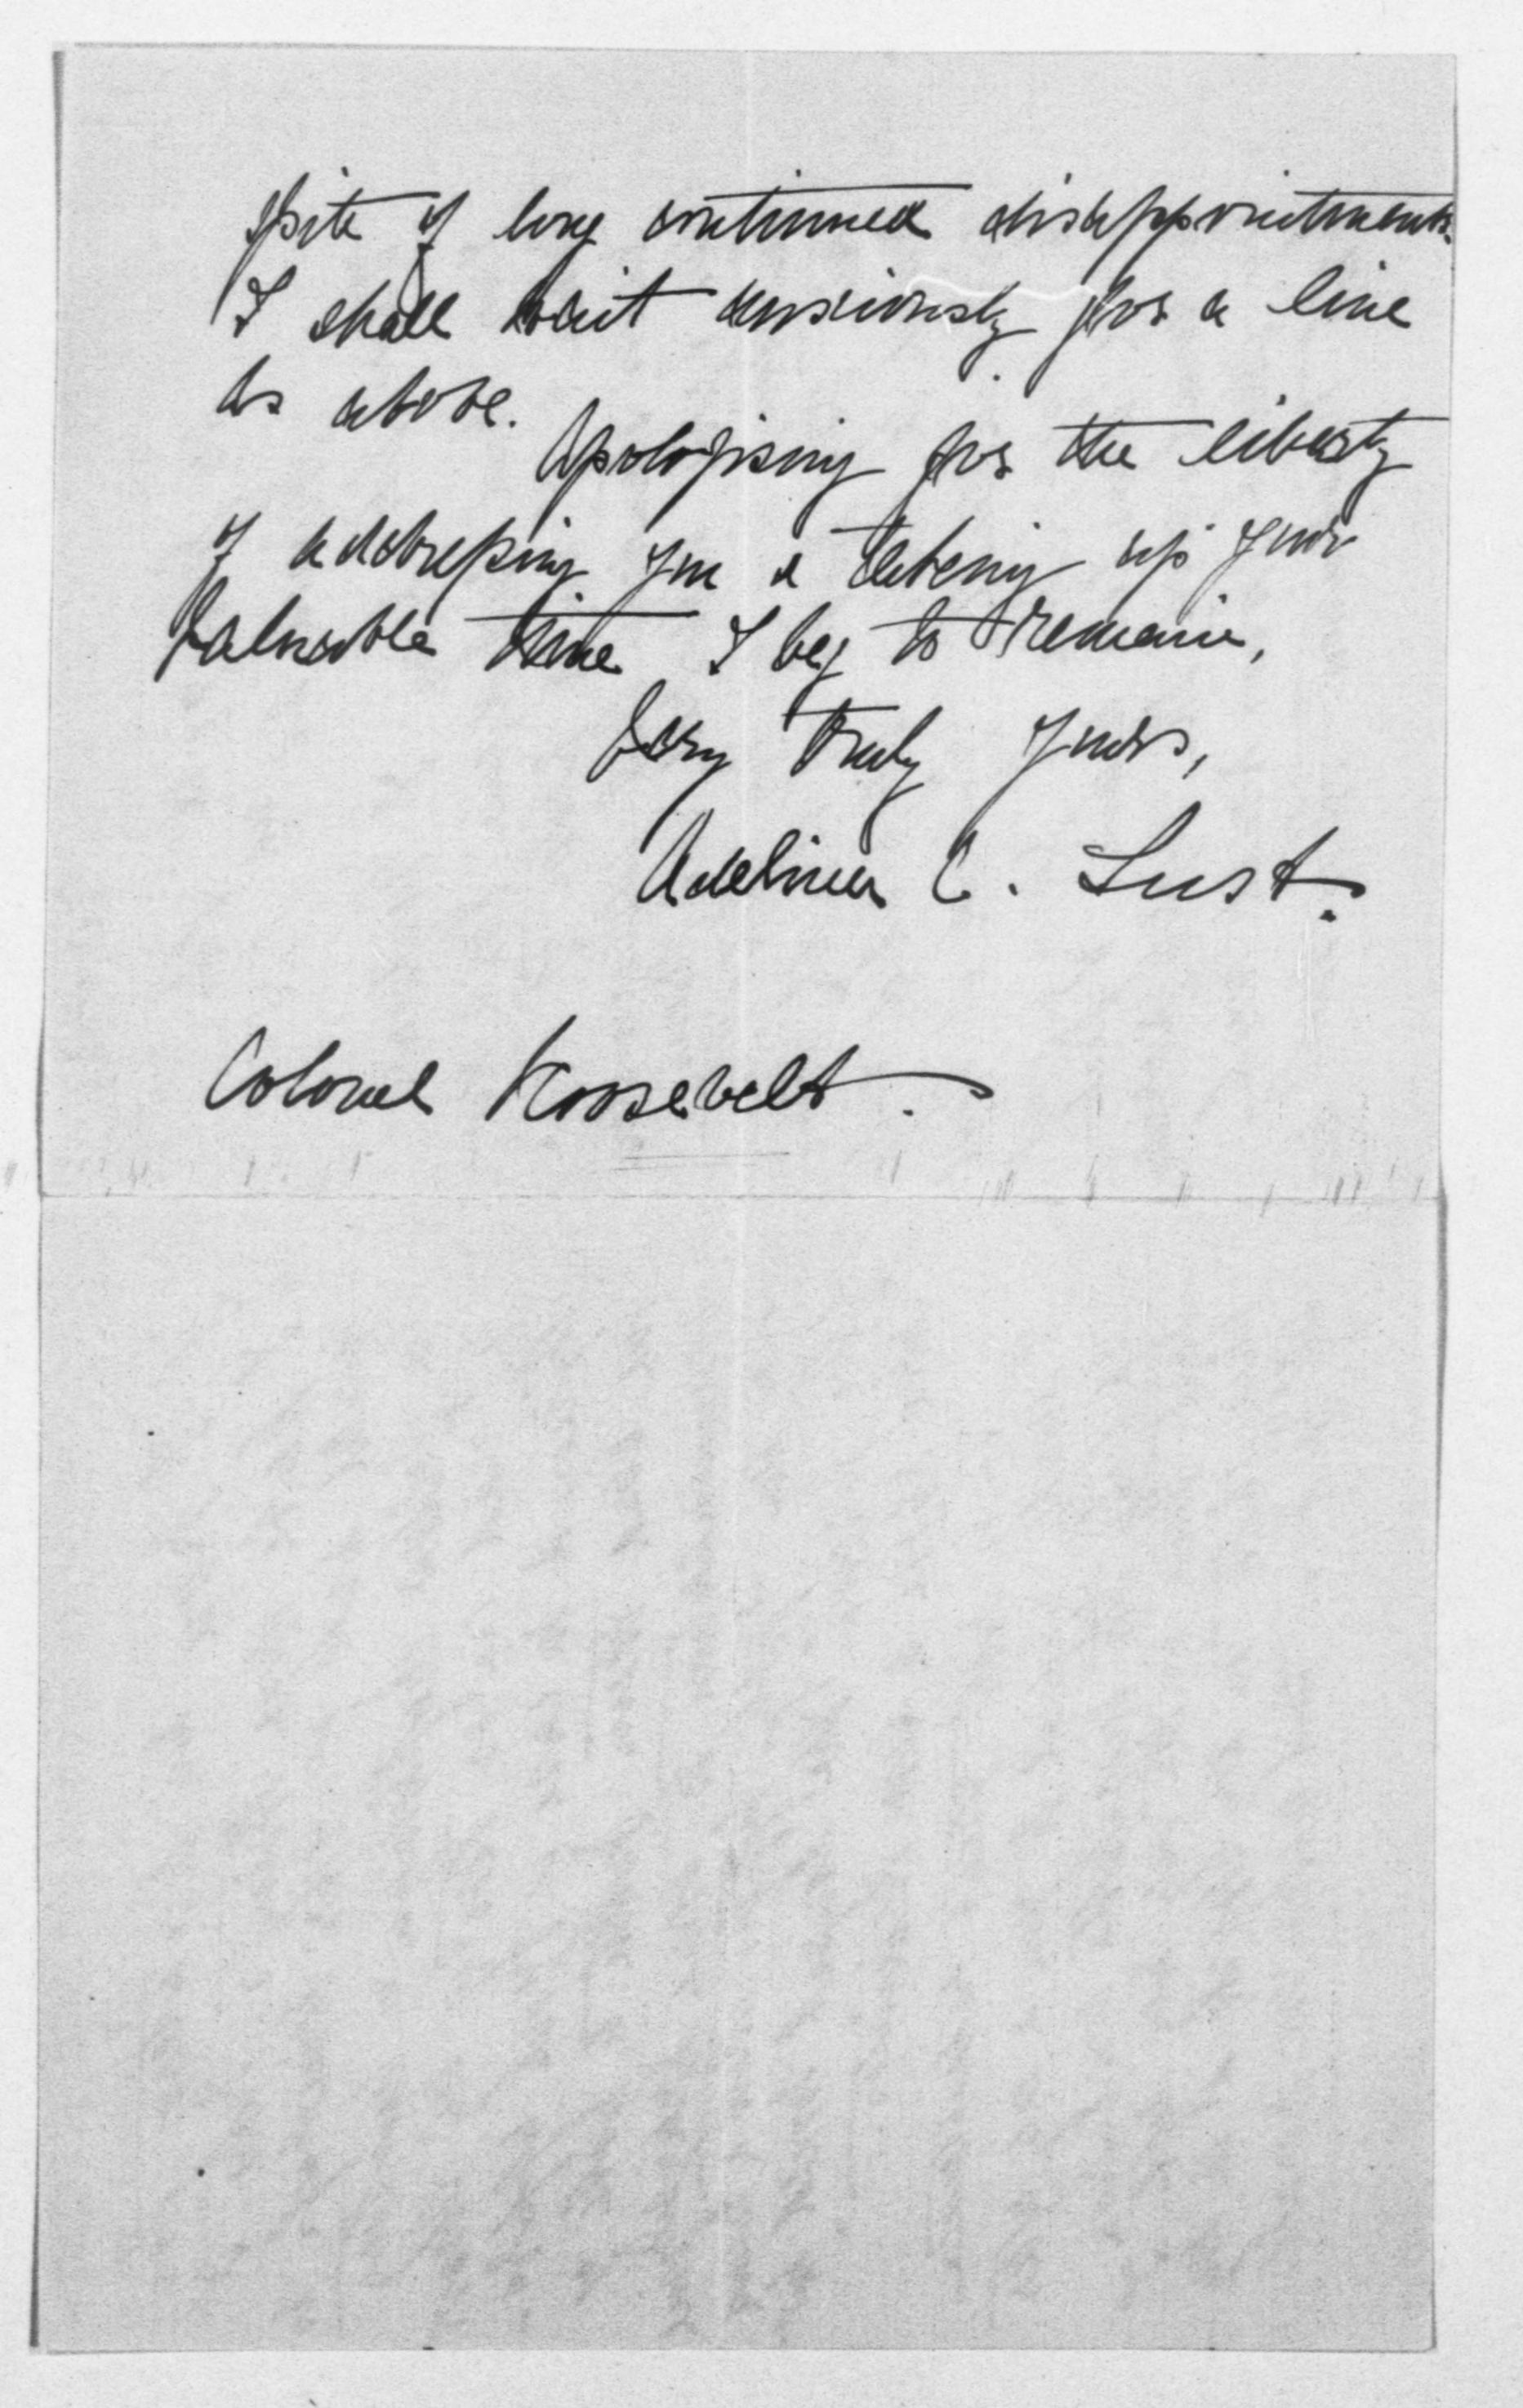 spite of long continued disappointments.
I shall wait anxiously for a line
as above.
Apologising for the liberty
of addressing you & taking up your
valuable time I beg to remain,
Very truly yours,
Adelina C. Lust.
Colonel Roosevelt.